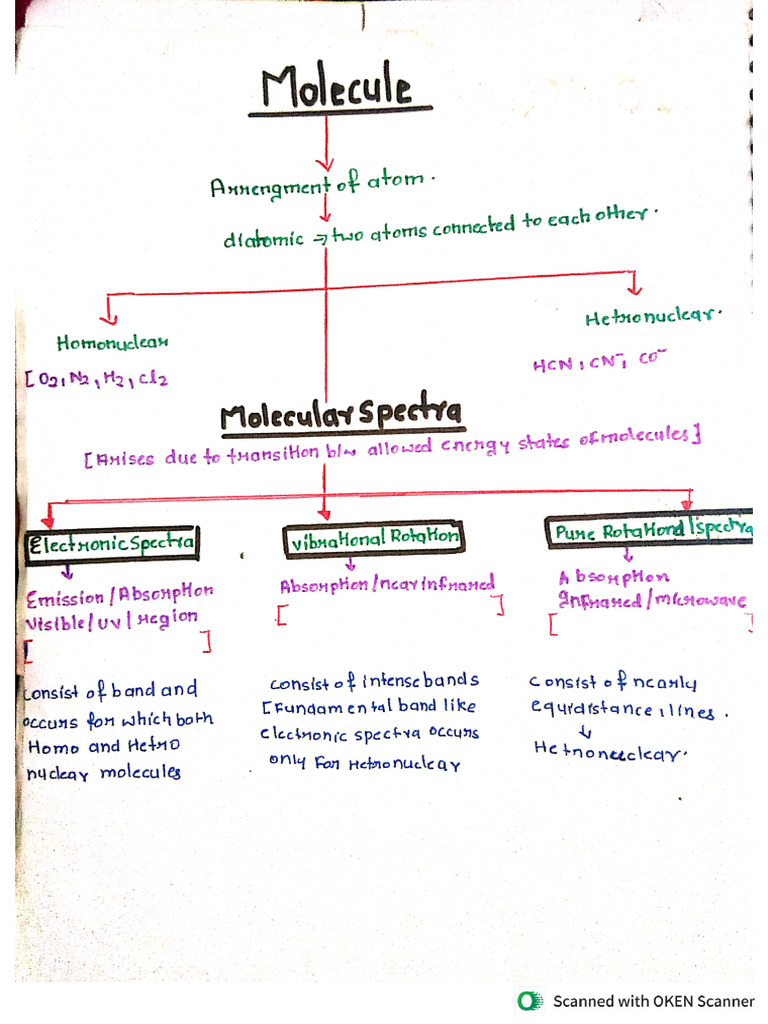 Molecule
Arrengment of atom.
diatomic ⇒ two atoms connected to each other.
Homonuclear
Hetronuclear.
[O2, N2, H2, Cl2
HCN, CN⁻, CO⁻
Molecular Spectra
[Arises due to transition b/w allowed energy states of molecules]
Electronic Spectra
Vibrational Rotation
Pure Rotational Spectra
Emission/Absorption
Visible/UV/region
[ ]
Absorption/near infrared
[ ]
Absorption
Infrared/microwave
[ ]
Consist of band and
occurs for which both
Homo and Hetro
nuclear molecules
Consist of intense bands
[Fundamental band like
electronic spectra occurs
only for Hetronuclear
Consist of nearly
equidistance, lines.
Hetronuclear.
Scanned with OKEN Scanner